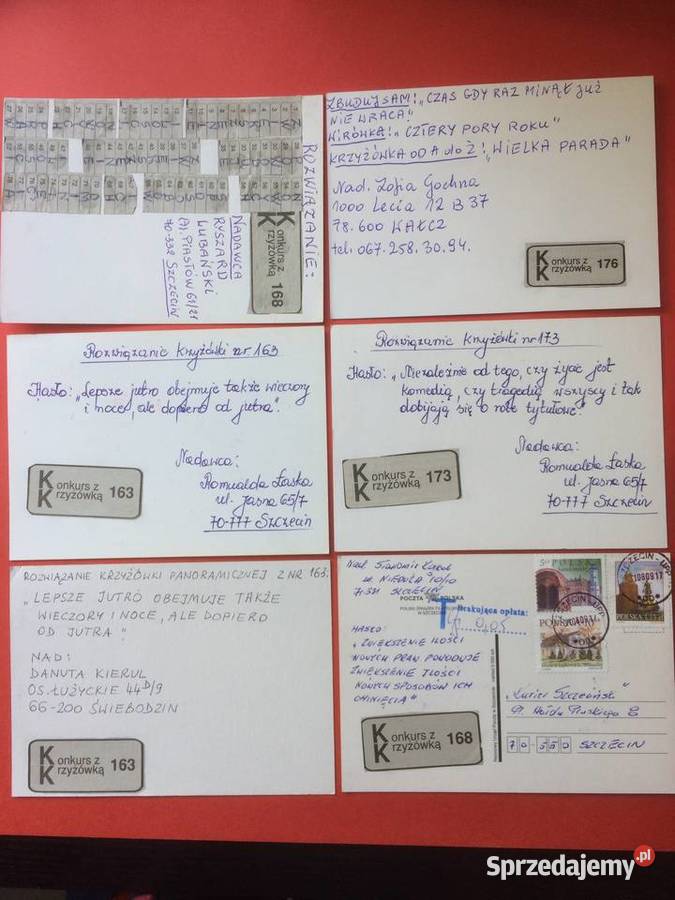 ROZWIĄZANIE:
NADAWCA
RYSZARD
LUBAŃSKI
Al. PIASTÓW 61/21
70-332 SZCZECIN
Konkurs z
Krzyżówką 168
ZBUDUJ SAM: „CZAS GDY RAZ MINĄŁ już
NIE WRACA"
WIRÓWKA: „CZTERY PORY ROKU"
KRZYŻÓWKA OD A do Ż: „WIELKA PARADA"
Nad. Zofia Gochna
1000 Lecia 12 B 37
78.600 WAŁCZ
tel. 067.258.30.94.
Konkurs z
Krzyżówką 176
Rozwiązanie krzyżówki nr 163
Hasło: „Lepsze jutro obejmuje także wieczory
i noce, ale dopiero od jutra".
Nadawca:
Romualda Łaska
ul. Jasna 65/7
70-777 Szczecin
Konkurs z
Krzyżówką 163
Rozwiązanie krzyżówki nr 173
Hasło: „Niezależnie od tego, czy życie jest
komedią, czy tragedią wszyscy i tak
dobijają się o rolę tytułową".
Nadawca:
Romualda Łaska
ul. Jasna 65/7
70-777 Szczecin
Konkurs z
Krzyżówką 173
ROZWIĄZANIE KRZYŻÓWKI PANORAMICZNEJ Z NR 163.
„LEPSZE JUTRO OBEJMUJE TAKŻE
WIECZORY I NOCE, ALE DOPIERO
OD JUTRA"
NAD:
DANUTA KIERUL
OS. ŁUŻYCKIE 44D/9
66-200 ŚWIEBODZIN
Konkurs z
Krzyżówką 163
SZCZECIN
POCZTA POLSKA
T Brakująca opłata:
0,05
HASŁO:
„ZWIĘKSZENIE ILOŚCI
NOWYCH PRAW POWODUJE
ZWIĘKSZENIE ILOŚCI
NOWYCH SPOSOBÓW ICH
OMINIĘCIA"
Konkurs z
Krzyżówką 168
POLSKA
„Kurier Szczeciński"
Pl. Hołdu Pruskiego 8
70-550 SZCZECIN
Sprzedajemy.pl